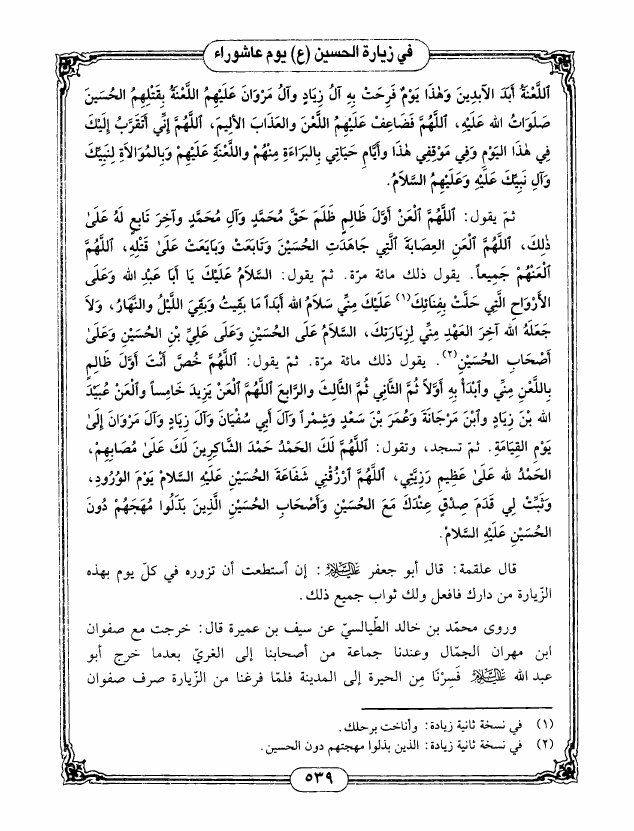 في زيارة الحسين (ع) يوم عاشوراء
اَللَّعْنَةُ أَبَدَ الآبِدِينَ وَهٰذا يَوْمٌ فَرِحَتْ بِهِ آلُ زِيَادٍ وَآلُ مَرْوَانَ عَلَيْهِمُ اللَّعْنَةُ بِقَتْلِهِمُ الحُسَيْنَ
صَلَوَاتُ الله عَلَيْهِ، اَللَّهُمَّ فَضَاعِفْ عَلَيْهِمُ اللَّعْنَ والعَذَابَ الأَلِيمَ، اَللَّهُمَّ إِنِّي أَتَقَرَّبُ إِلَيْكَ
فِي هٰذَا اليَوْمِ وَفِي مَوْقِفِي هٰذَا وَأَيَّامِ حَيَاتِي بِالبَرَاءَةِ مِنْهُمْ واللَّعْنَةِ عَلَيْهِمْ وَبِالمُوَالاَةِ لِنَبِيِّكَ
وَآلِ نَبِيِّكَ عَلَيْهِ وَعَلَيْهِمُ السَّلاَمُ.
ثمّ يقول: اَللَّهُمَّ الْعَنْ أَوَّلَ ظَالِمٍ ظَلَمَ حَقَّ مُحَمَّدٍ وَآلِ مُحَمَّدٍ وآخِرَ تَابِعٍ لَهُ عَلَىٰ
ذٰلِكَ، اَللَّهُمَّ الْعَنِ العِصَابَةَ الَّتِي جَاهَدَتِ الحُسَيْنَ وَتَابَعَتْ وَبَايَعَتْ عَلَىٰ قَتْلِهِ، اَللَّهُمَّ
الْعَنْهُمْ جَمِيعاً. يقول ذلك مائة مرّة. ثمّ يقول: السَّلاَمُ عَلَيْكَ يَا أَبَا عَبْدِ الله وَعَلَى
الأَرْوَاحِ الَّتِي حَلَّتْ بِفِنَائِكَ(١) عَلَيْكَ مِنِّي سَلاَمُ الله أَبَداً مَا بَقِيتُ وَبَقِيَ اللَّيْلُ والنَّهَارُ، وَلاَ
جَعَلَهُ الله آخِرَ العَهْدِ مِنِّي لِزِيَارَتِكَ، السَّلاَمُ عَلَى الحُسَيْنِ وَعَلَى عَلِيِّ بْنِ الحُسَيْنِ وَعَلىٰ
أَصْحَابِ الحُسَيْنِ(٢). يقول ذلك مائة مرّة. ثمّ يقول: اَللَّهُمَّ خُصَّ أَنْتَ أَوَّلَ ظَالِمٍ
بِاللَّعْنِ مِنِّي وابْدَأْ بِهِ أَوَّلاً ثُمَّ الثَّانِي ثُمَّ الثَّالِثَ والرَّابِعَ اَللَّهُمَّ الْعَنْ يَزِيدَ خَامِساً والْعَنْ عُبَيْدَ
الله بْنَ زِيَادٍ وابْنَ مَرْجَانَةَ وَعُمَرَ بْنَ سَعْدٍ وَشِمْراً وَآلَ أَبِي سُفْيَانَ وَآلَ زِيَادٍ وَآلَ مَرْوَانَ إِلَىٰ
يَوْمِ القِيَامَةِ. ثمّ تسجد، وتقول: اَللَّهُمَّ لَكَ الحَمْدُ حَمْدَ الشَّاكِرِينَ لَكَ عَلَىٰ مُصَابِهِمْ،
الحَمْدُ لله عَلَىٰ عَظِيمِ رَزِيَّتِي، اَللَّهُمَّ ارْزُقْنِي شَفَاعَةَ الحُسَيْنِ عَلَيْهِ السَّلامُ يَوْمَ الوُرُودِ،
وَثَبِّتْ لِي قَدَمَ صِدْقٍ عِنْدَكَ مَعَ الحُسَيْنِ وَأَصْحَابِ الحُسَيْنِ الَّذِينَ بَذَلُوا مُهَجَهُمْ دُونَ
الحُسَيْنِ عَلَيْهِ السَّلاَمُ.
قال علقمة: قال أبو جعفر عليه السلام: إن استطعت أن تزوره في كلّ يوم بهذه
الزّيارة من دارك فافعل ولك ثواب جميع ذلك.
وروى محمّد بن خالد الطّيالسيّ عن سيف بن عميرة قال: خرجت مع صفوان
ابن مهران الجمّال وعندنا جماعة من أصحابنا إلى الغريّ بعدما خرج أبو
عبد الله عليه السلام فَسِرْنَا مِن الحيرة إلى المدينة فلمّا فرغنا من الزّيارة صرف صفوان
(١) في نسخة ثانية زيادة: وأناخت برحلك.
(٢) في نسخة ثانية زيادة: الذين بذلوا مهجتهم دون الحسين.
٥٣٩